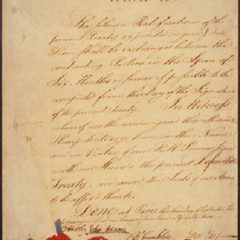 The solemn Ratifications of the
present Treaty expedited in good & due
Form shall be exchanged between the
contracting Parties in the Space of
Six Months or sooner if possible to be
computed from the Day of the Signature
of the present Treaty. In Witness
whereof we the undersigned their Ministers
Plenipotentiary have in their Name
and in Virtue of our Full Powers signed
with our Hands the present Definitive
Treaty, and caused the Seals of our Arms
to be affix'd thereto.
Done at Paris
John Adams
B Franklin
John Jay